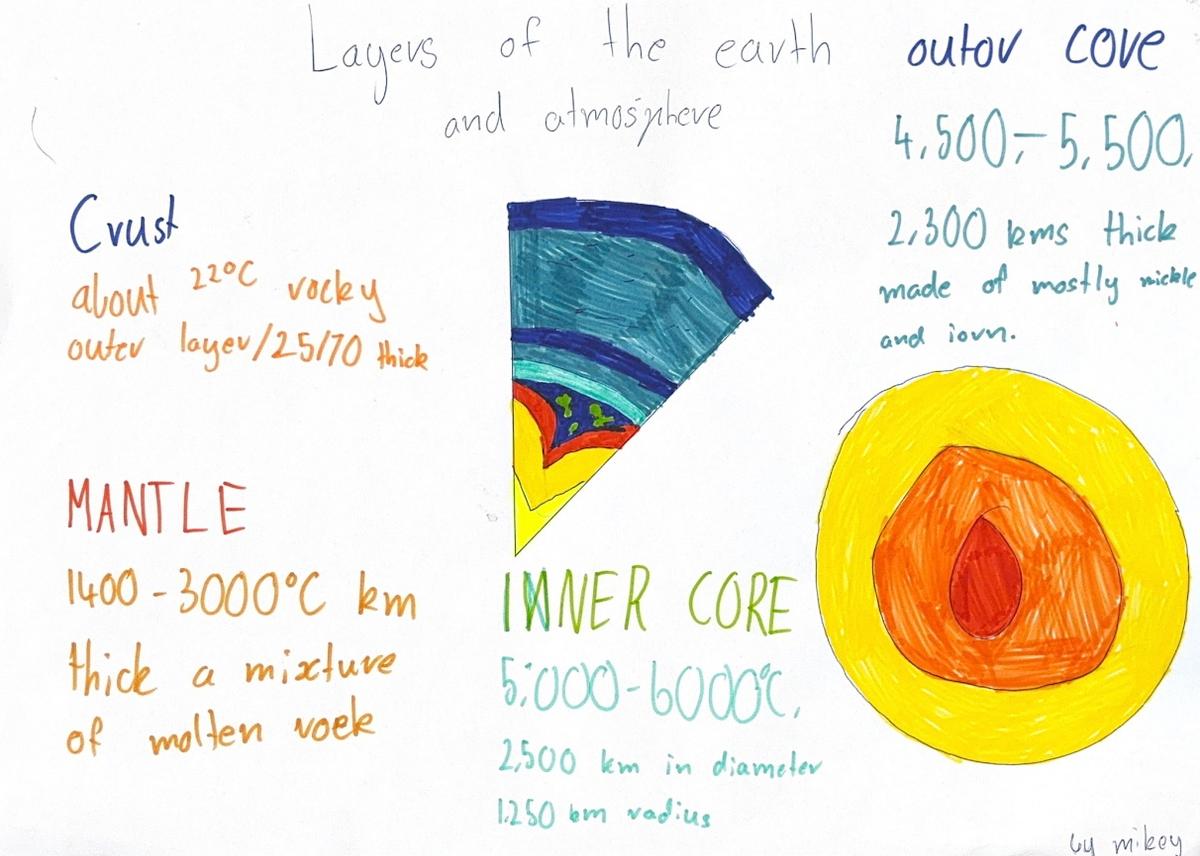 Layers of the earth
and atmosphere
outor core
4,500,- 5,500,
2,300 kms thick
made of mostly nickle
and iorn.
Crust
about 22°C rocky
outer layer/25/70 thick
MANTLE
1400-3000°C km
thick a mixture
of molten roek
INNER CORE
5,000-6000°C,
2,500 km in diameter
1.250 km radius
by mikey